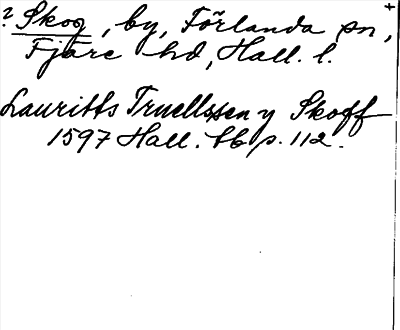 ? Skog, by, Förlanda sn, +
Fjäre hd, Hall. l.
Lauritts Truellssen y Skoff
1597 Hall. tb p. 112.